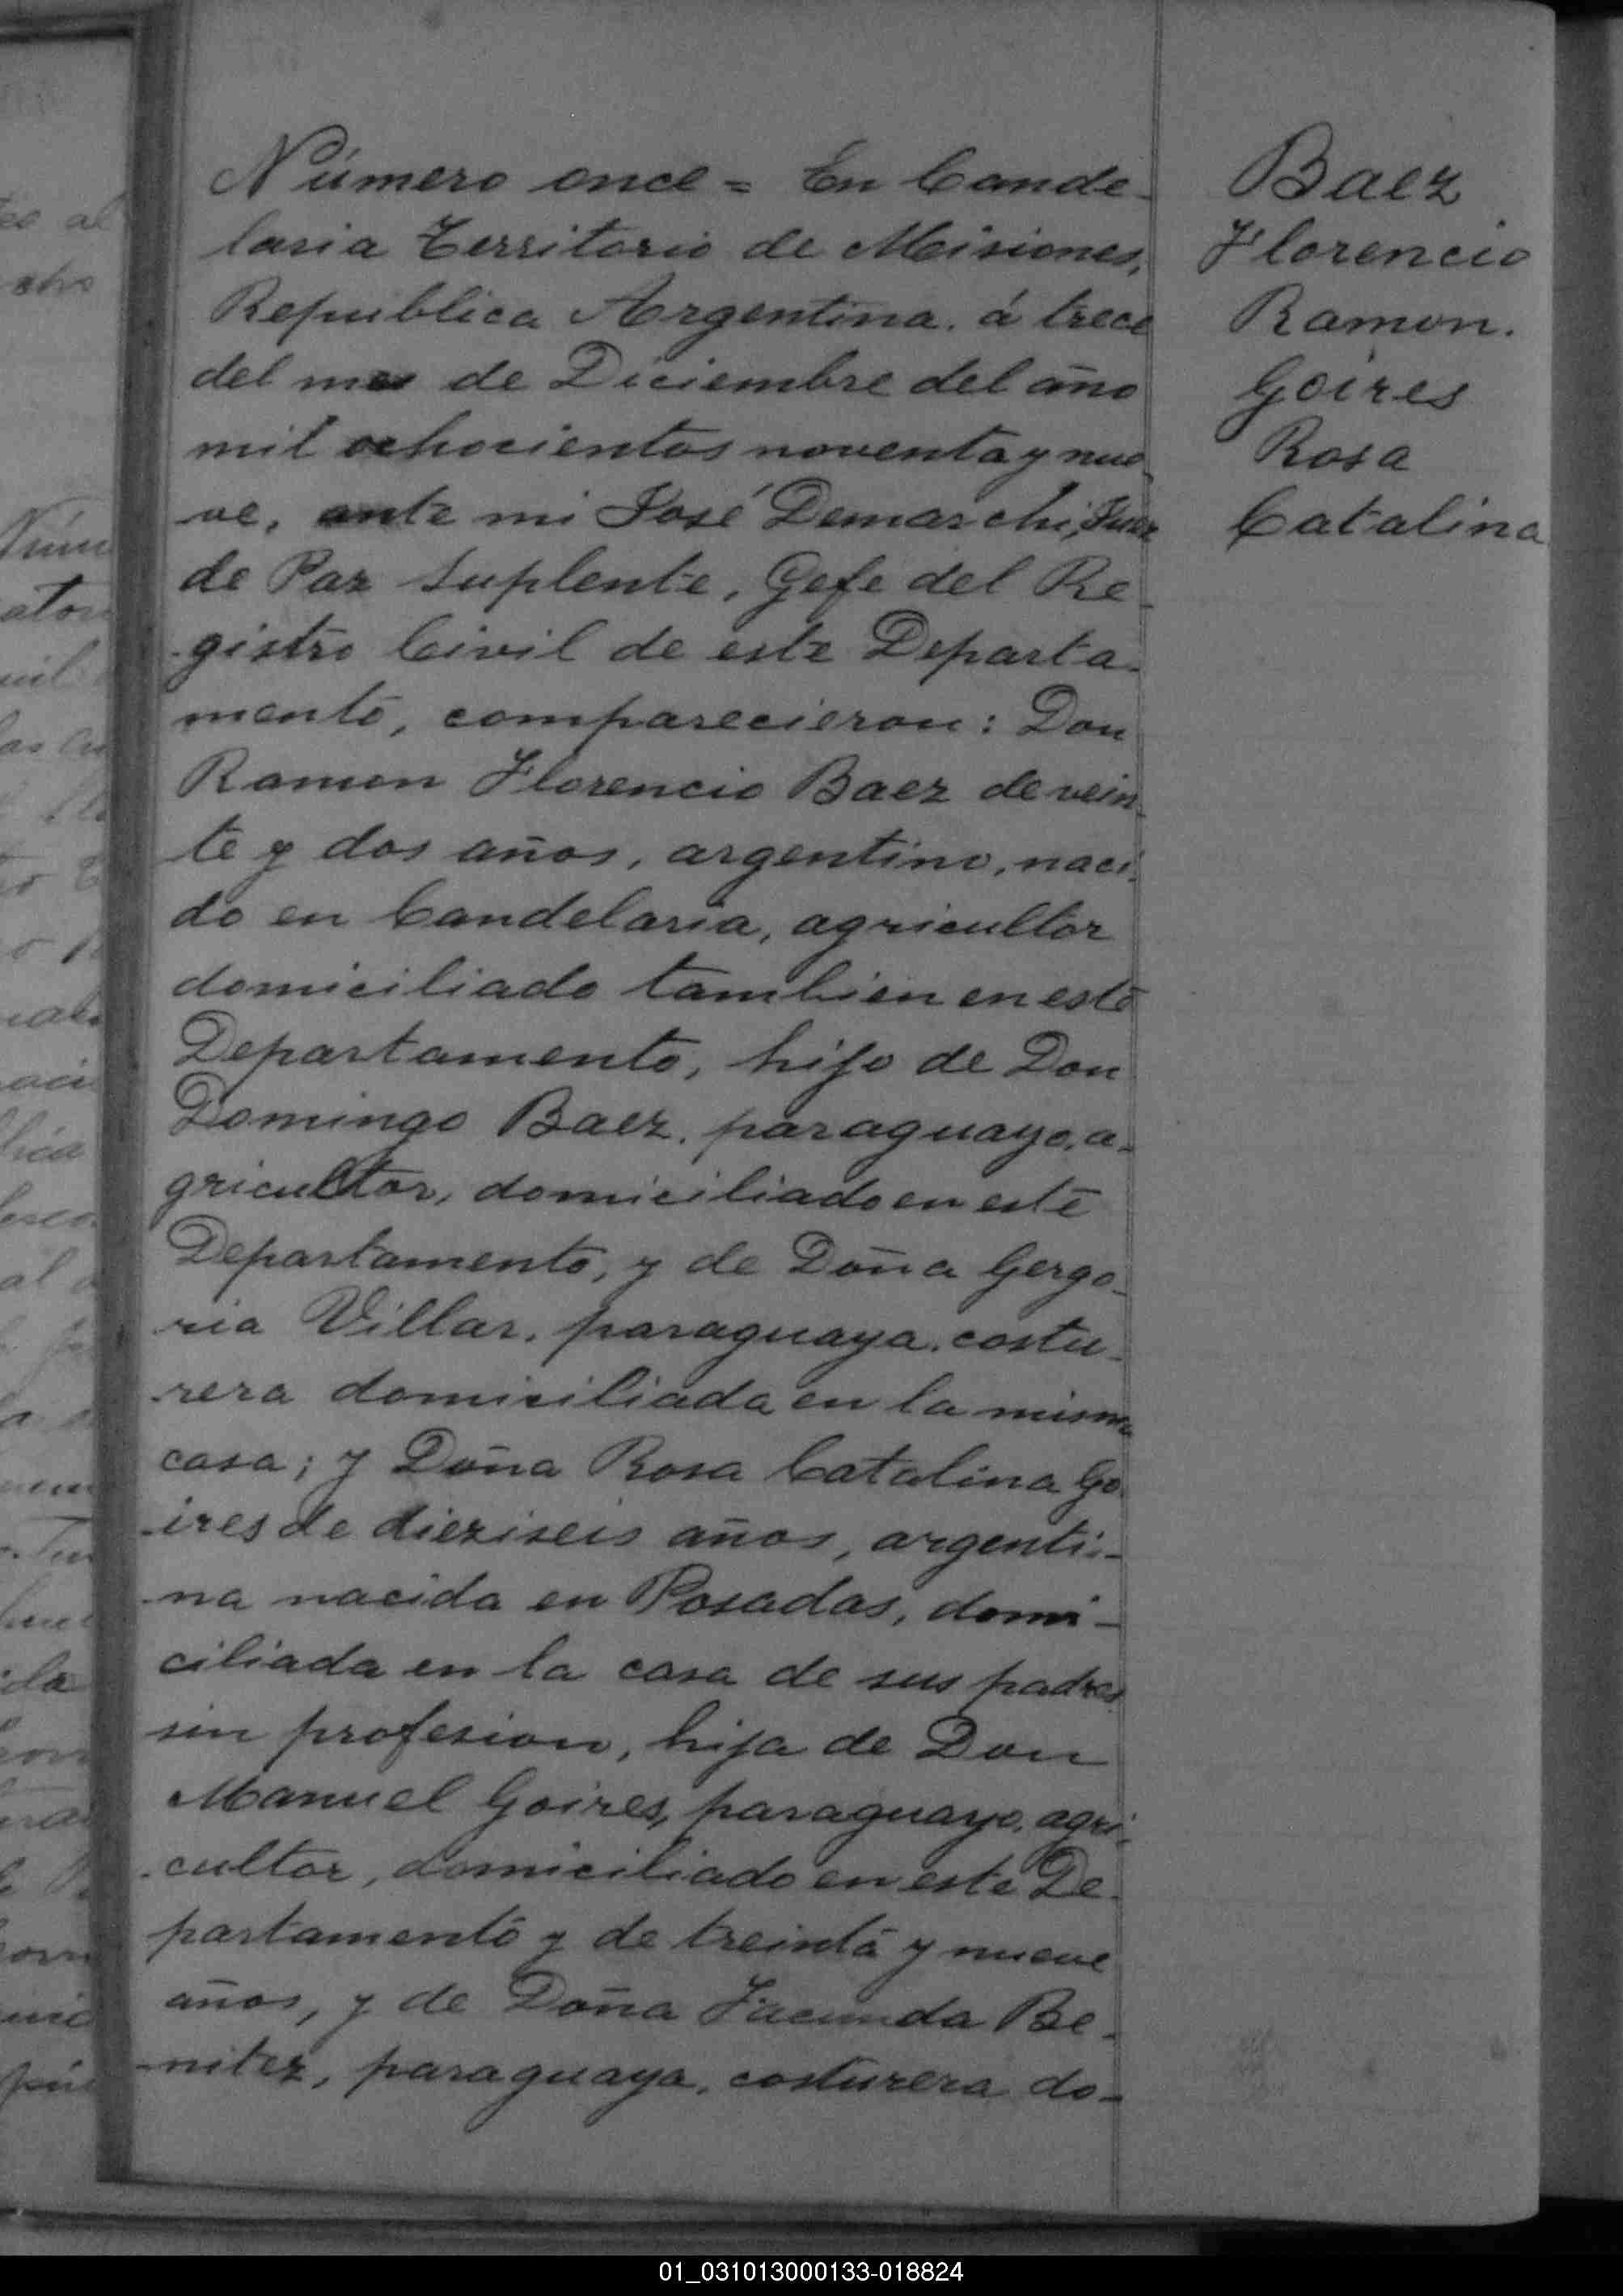 Número once = En Cande-
laria Territorio de Misiones,
Republica Argentina. á trece
del mes de Diciembre del año
mil ochocientos noventa y nue-
ve, ante mi José Demarchi, Juez
de Paz Suplente, Gefe del Re-
gistro Civil de este Departa-
mento, comparecieron: Don
Ramon Florencio Baez de vein-
te y dos años, argentino, naci-
do en Candelaria, agricultor
domiciliado tambien en este
Departamento, hijo de Don
Domingo Baez, paraguayo, a-
gricultor, domiciliado en este
Departamento, y de Doña Gergo-
ria Villar, paraguaya, costu-
rera domiciliada en la misma
casa; y Doña Rosa Catalina Go-
ires de dieziseis años, argenti-
na nacida en Posadas, domi-
ciliada en la casa de sus padres
sin profesion, hija de Don
Manuel Goires, paraguayo, agri-
cultor, domiciliado en este De-
partamento y de treinta y nueve
años, y de Doña Facunda Be-
nitez, paraguaya, costurera do-
Baez
Florencio
Ramon.
Goires
Rosa
Catalina
01_031013000133-018824